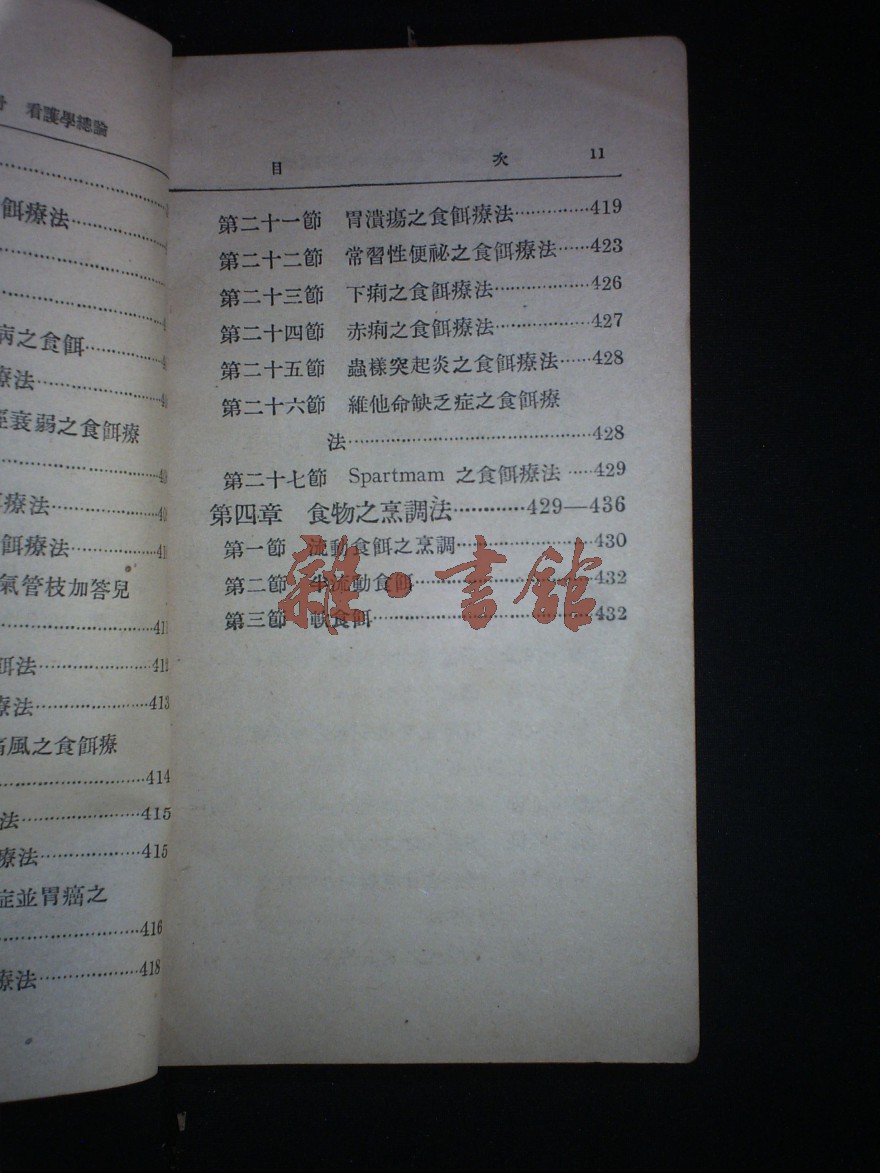 看護學總論
餌療法
病之食餌
療法
衰弱之食餌療
療法
餌療法
氣管枝加答兒
411
餌法
療法 413
痛風之食餌療
414
法 415
療法 415
症並胃癌之
416
療法 418
目 次 11
第二十一節 胃潰瘍之食餌療法 419
第二十二節 常習性便祕之食餌療法 423
第二十三節 下痢之食餌療法 426
第二十四節 赤痢之食餌療法 427
第二十五節 蟲樣突起炎之食餌療法 428
第二十六節 維他命缺乏症之食餌療
法 428
第二十七節 Spartmam 之食餌療法 429
第四章 食物之烹調法 429—436
第一節 流動食餌之烹調 430
第二節 半流動食餌 432
第三節 軟食餌 432
雜·書館